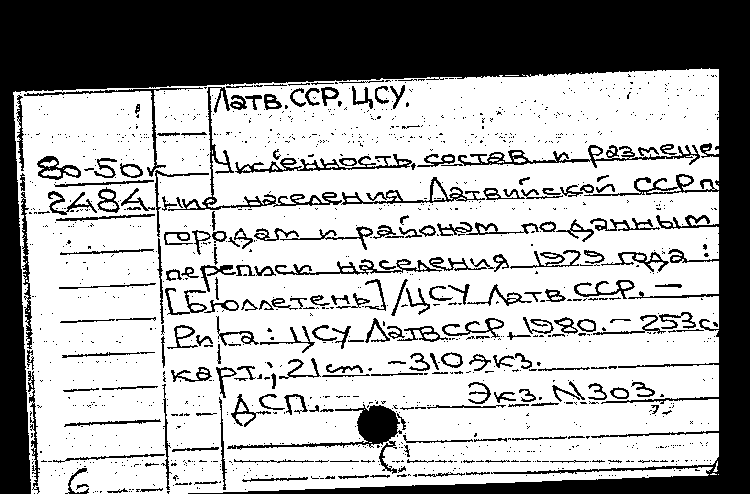 Латв. ССР. ЦСУ.
80-50к Численность, состав и размеще-
2484 ние населения Латвийской ССР по
городам и районам по данным
переписи населения 1979 года :
[Бюллетень] / ЦСУ Латв. ССР. —
Рига : ЦСУ Латв ССР, 1980. — 253 с.
карт.; 21 см. - 310 экз.
ДСП. Экз. N 303.
С
6